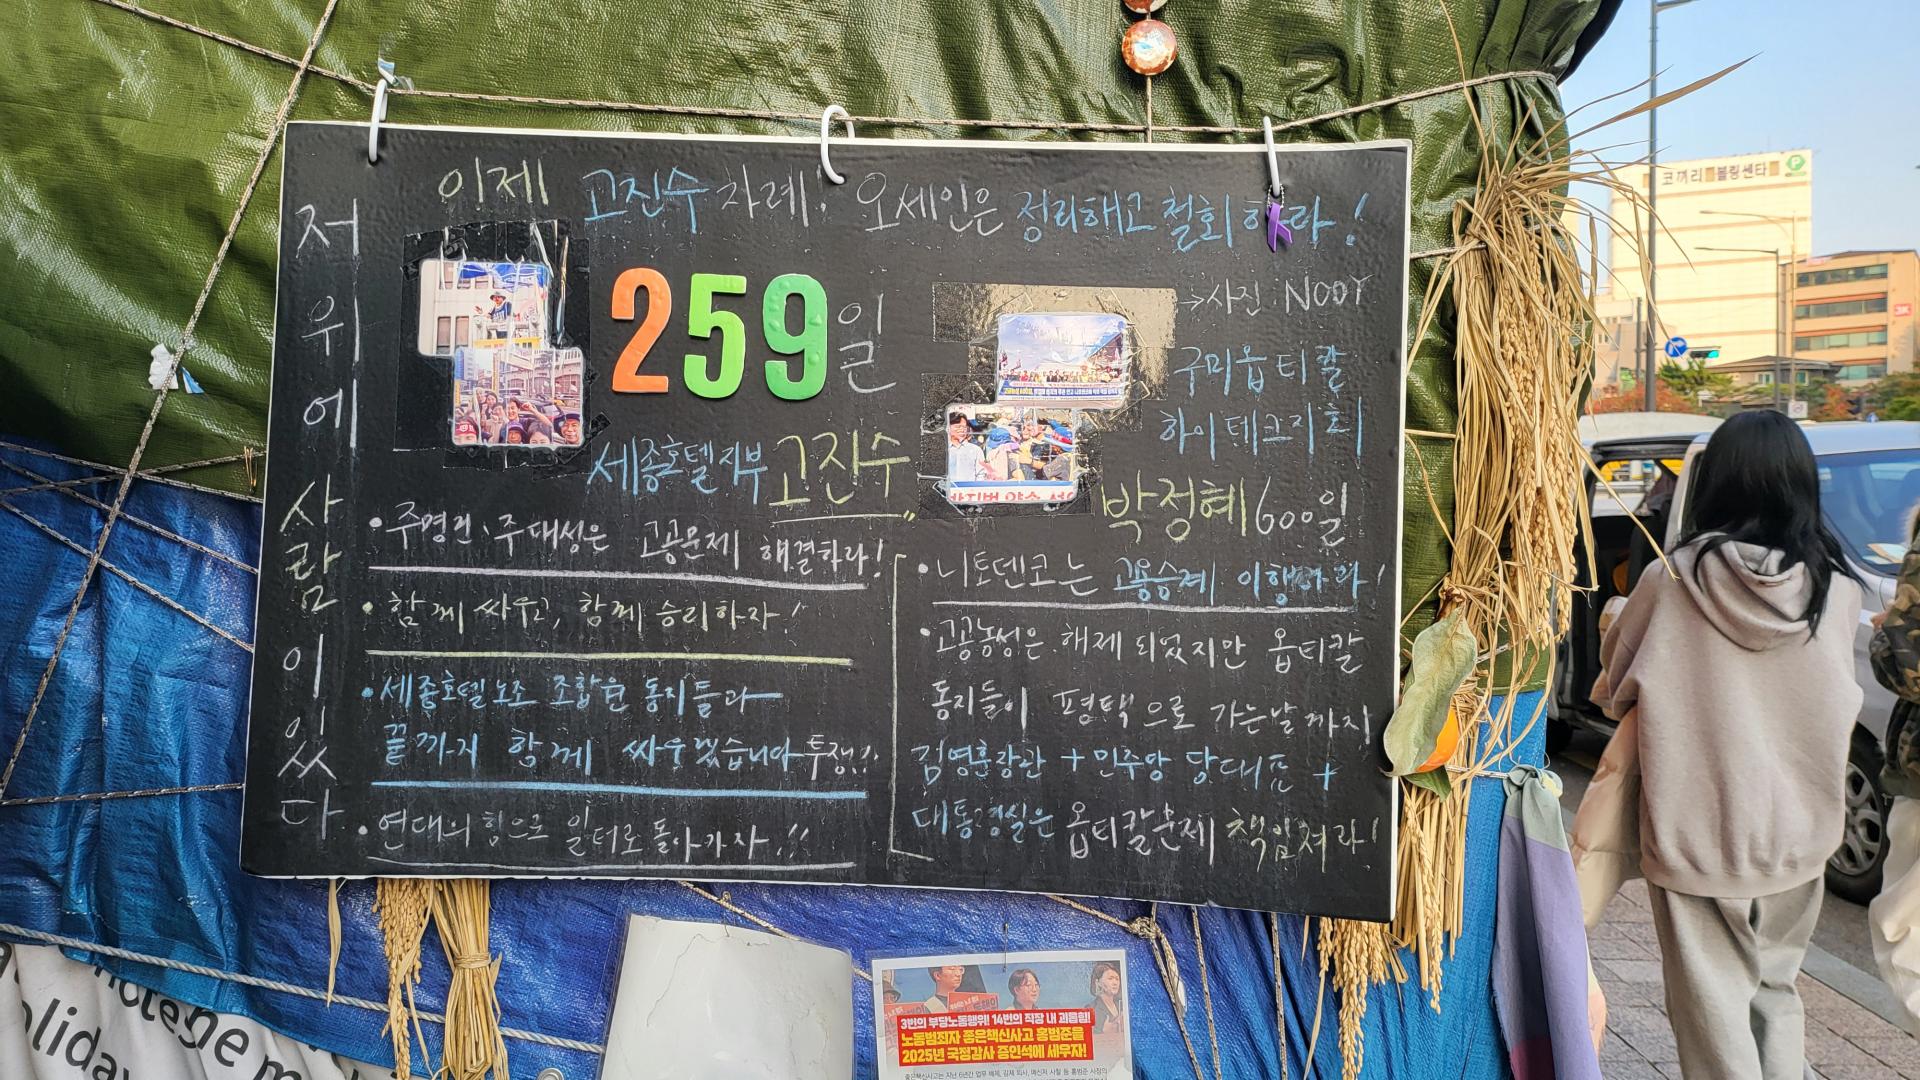 저 위에 사람이 있다
이제 고진수 차례. 오세인은 정리해고 철회하라!
259일
세종호텔지부 고진수
• 주명건, 주대성은 고공문제 해결하라!
• 함께 싸우고, 함께 승리하자!
• 세종호텔노조 조합원 동지들과
끝까지 함께 싸우겠습니다 투쟁!!
• 연대의 힘으로 일터로 돌아가자!!
→사진 : NOOY
구미옵티칼
하이테크지회
박정혜 600일
• 니토덴코는 고용승계 이행하라!
• 고공농성은 해제되었지만 옵티칼
동지들이 평택으로 가는날까지
김영훈장관 + 민주당 당대표 +
대통령실은 옵티칼문제 책임져라!
3번의 부당노동행위! 14번의 직장 내 괴롭힘!
노동범죄자 좋은책신사고 홍범준을
2025년 국정감사 증인석에 세우자!
코끼리 볼링센타
P
olida